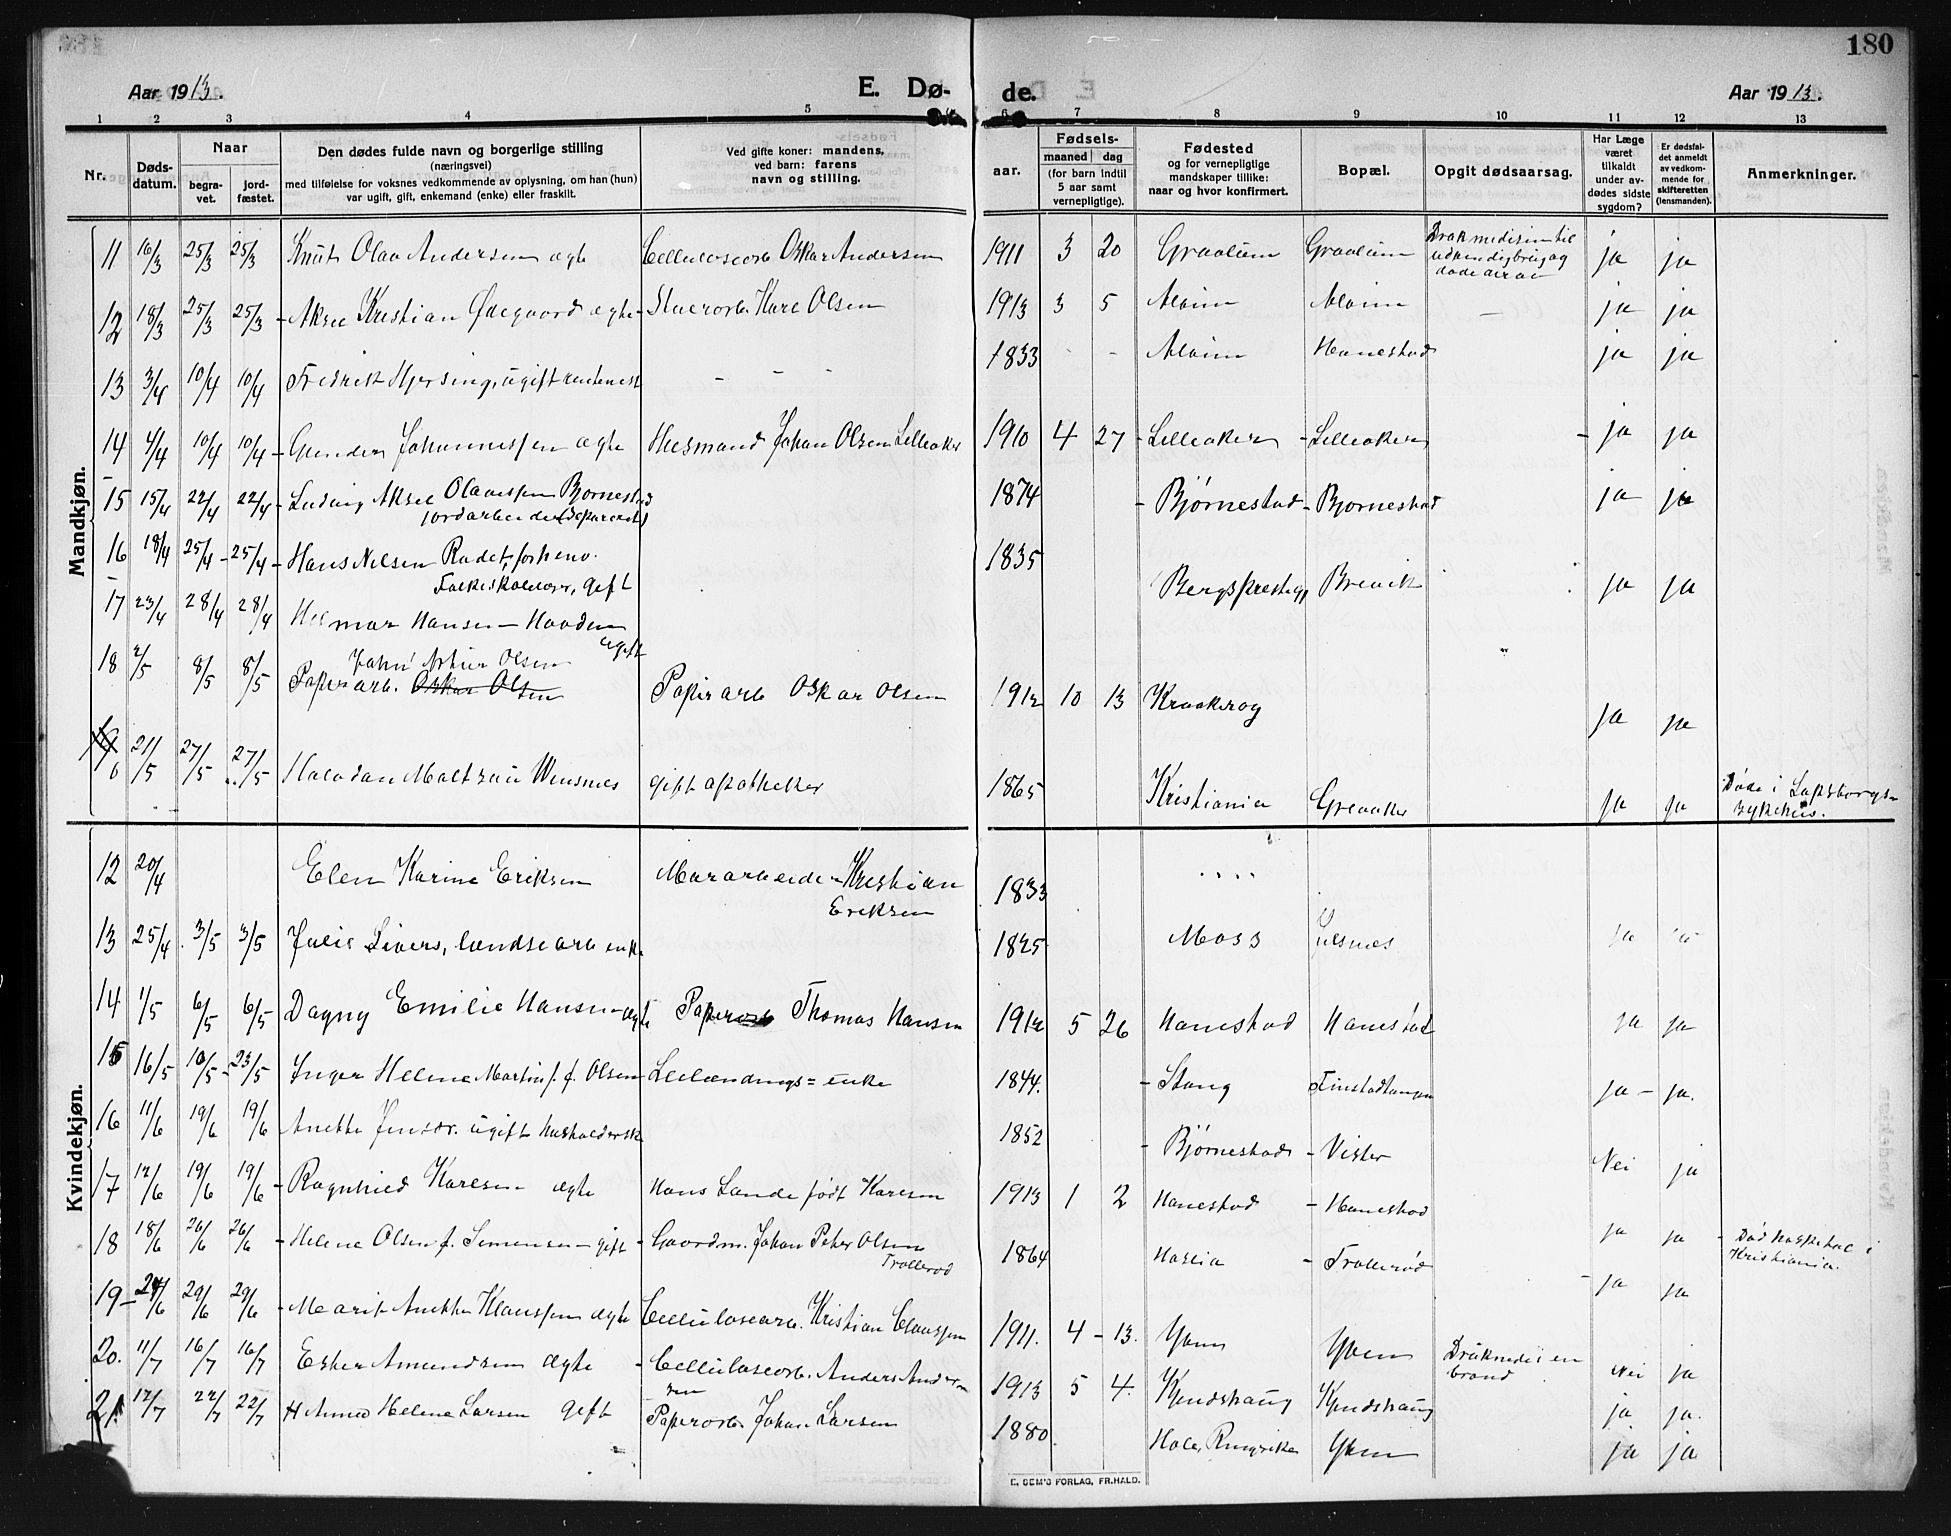 180
Aar 1913.
E. Dø-
de.
Aar 1913.
1 2 3 4 5 6 7 8 9 10 11 12 13
Nr.
Døds-
datum.
Naar
begra-
vet.
jord-
fæstet.
Den dødes fulde navn og borgerlige stilling
(næringsvei)
med tilføielse for voksnes vedkommende av oplysning, om han (hun)
var ugift, gift, enkemand (enke) eller fraskilt.
Ved gifte koner: mandens,
ved barn: farens
navn og stilling.
Fødsels-
aar.
maaned
dag
(for barn indtil
5 aar samt
vernepligtige).
Fødested
og for vernepligtige
mandskaper tillike:
naar og hvor konfirmert.
Bopæl.
Opgit dødsaarsag.
Har Læge
været
tilkaldt
under av-
dødes sidste
sygdom?
Er dødsfal-
det anmeldt
av vedkom-
mende for
skifteretten
(lensmanden).
Anmerkninger.
Mandkjøn.
11 16/3 25/3 25/3 Knut Olav Andersen ægte Cellulosearb. Oskar Andersen 1911 3 20 Graalum Graalum ja ja
12 18/3 25/3 25/3 Aksel Kristian Ødegaard ægte Kare Olsen 1913 3 5 Alvim Alvim - ja ja
13 3/4 10/4 10/4 Fredrik Hjersing, ugift - - - 1833 - - Alvim Hanestad ja ja
14 4/4 10/4 10/4 Gunder Johannessen ægte Husmand Johan Olsen Lilleaker 1910 4 27 Lilleaker Lilleaker - ja ja
15 15/4 22/4 22/4 Ludvig Aksel Olavessen Bjørnestad
jordarbeider (separeret) 1874 Bjørnestad Bjørnestad ja ja
16 18/4 25/4 25/4 Hans Nilsen Radet, forhenv.
Folkeskolelærer, gift 1835 Bergs Brevik ja ja
17 23/4 28/4 28/4 Helmar Hansen Haaden
ugift
18 2/5 8/5 8/5 Arthur Olsen
Papirarb. Oskar Olsen Papirarb Oskar Olsen 1912 10 13 Kraakerøy ja ja
21/5 27/5 27/5 Halvdan Maltzau Wensnes gift apotheker 1865 Kristiania Greaaker ja ja Døde i
sykehus.
Kvindekjøn.
12 20/4 Elen Karine Eriksen Kristian
Eriksen 1833 ....
13 25/4 3/5 3/5 Julie Sivers, enke 1825 Moss ja ja
14 1/5 6/5 6/5 Dagny Emilie Hansen ægte Papirarb Thomas Hansen 1912 5 26 Hanestad Hanestad ja ja
15 16/5 10/5 23/5 Inger Helene Martin f. f. Olsen Leilændings = enke 1844. Stang Finstadtangen ja - ja.
16 11/6 19/6 19/6 Anette Jensdr. ugift husholderske 1852 Bjørnestad Vister Nei ja
17 12/6 19/6 19/6 Ragnhild Karlsen ægte Hans Lande født Karlsen 1913 1 2 Hanestad Hanestad ja ja
18 18/6 26/6 26/6 Helene Olsen f. Simensen gift Gaardm. Johan Peter Olsen
Trollerød 1864 Haslia Trollerød ja ja Død i
Kristiania.
19 24/6 29/6 29/6 Marit Anette Klaussen ægte Cellulosearb. Kristian Claussen 1911. 4 - 13. Yven Yven
20. 11/7 16/7 16/7 Ester Amundsen ægte Cellulosearb. Anders Ander-
sen 1913 5 4. Kjendshaug Kjendshaug Druknede i en
brønd Nei ja
21 12/7 22/7 22/7 Anna Helene Larsen gift Papirarb. Johan Larsen 1880 Hole, Ringrike Yven ja ja
E. SEM'S FORLAG, FR.HALD.